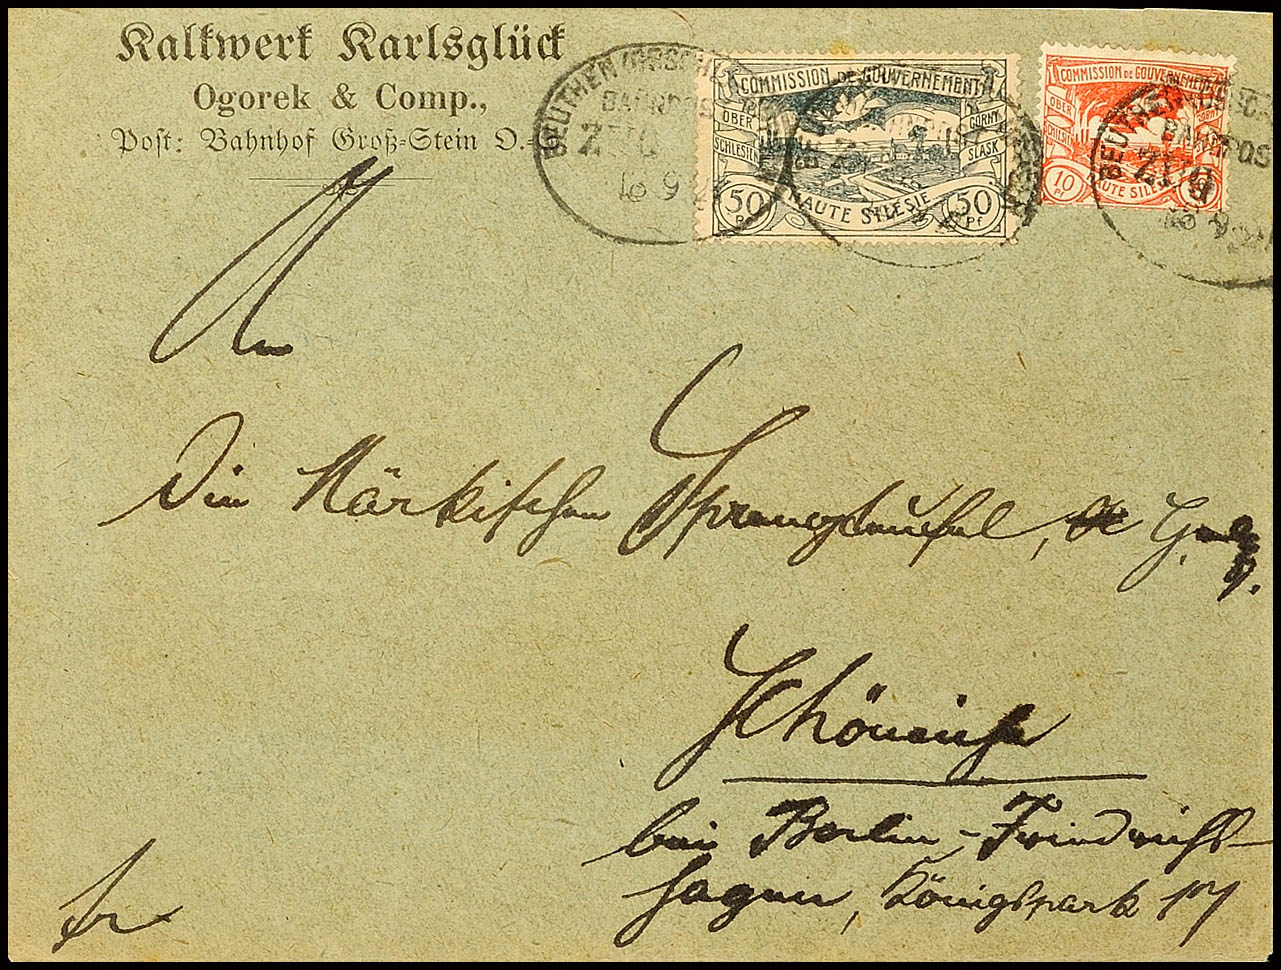 Kalkwerk Karlsglück
Ogorek & Comp.,
Post: Bahnhof Groß-Stein O.-
BEUTHEN (OBERSCHL
BAHNPOST
ZUG
18 9
COMMISSION DE GOUVERNEMENT
OBER GORNY
SCHLESIEN SLASK
50 Pf 50 Pf
HAUTE SILESIE
COMMISSION DE GOUVERNEMENT
OBER GORNY
SCHLESIEN
10 Pf
HAUTE SILESIE
BEUTHEN
BAHNPOST
ZUG
18 9
An
Die Märkischen
Schöneiche
bei Berlin-Friedrichs-
hagen, Königspark 17
fr